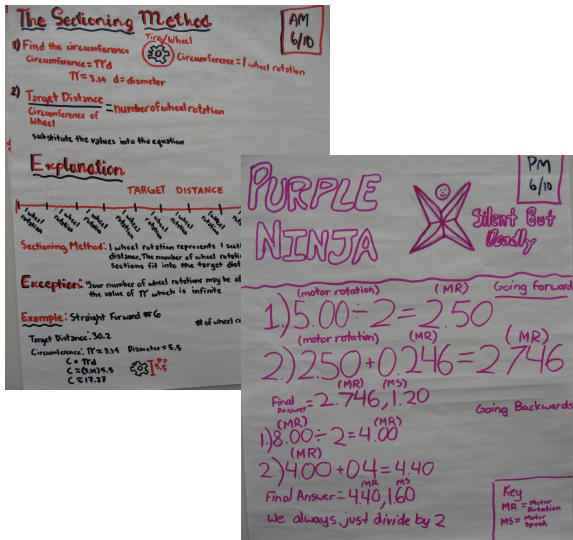 The Sectioning Method
AM
6/10
1) Find the circumference
Circumference = πd
π = 3.14 d = diameter
Tire/Wheel
Circumference = 1 wheel rotation
2) Target Distance
Circumference of
Wheel
= number of wheel rotation
substitute the values into the equation
Explanation
TARGET DISTANCE
1 wheel rotation
1 wheel rotation
1 wheel rotation
1 wheel rotation
1 wheel rotation
1 wheel rotation
1 wheel rotation
Sectioning Method: 1 wheel rotation represents 1 secti
distance. The number of wheel rotati
sections fit into the target dist
Exception: Your number of wheel rotations may be
the value of π which is infinite
Example: Straight Forward #6
# of wheel r
Target Distance: 30.2
Circumference: π = 3.14 Diameter = 5.5
C = πd
C = (3.14)5.5
C = 17.27
5.5
PURPLE
NINJA
Silent But
Deadly
PM
6/10
Going Forward
(motor rotation) (MR)
1.) 5.00 ÷ 2 = 2.50
(motor rotation) (MR) (MR)
2.) 2.50 + 0.246 = 2.746
(MR) (MS)
Final Answer = 2.746, 1.20
Going Backwards
(MR) (MR)
1.) 8.00 ÷ 2 = 4.00
(MR)
2.) 4.00 + 0.4 = 4.40
MR MS
Final Answer = 4.40, 1.60
We always just divide by 2
Key
MR = Motor
Rotation
MS = Motor
Speed